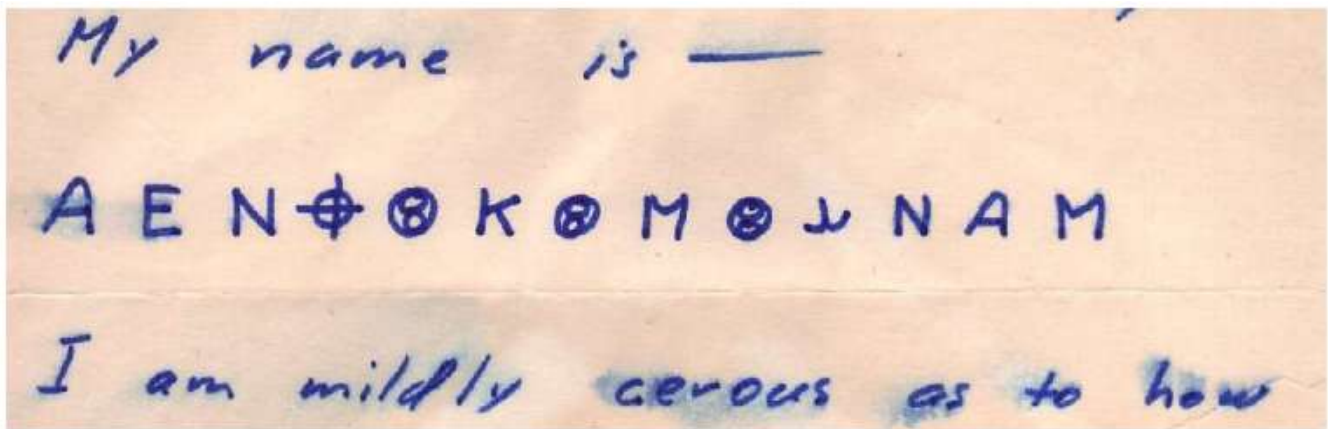 My name is —
A E N ⌖ ⑧ K ⑧ M ⑧ N A M
I am mildly cerous as to how